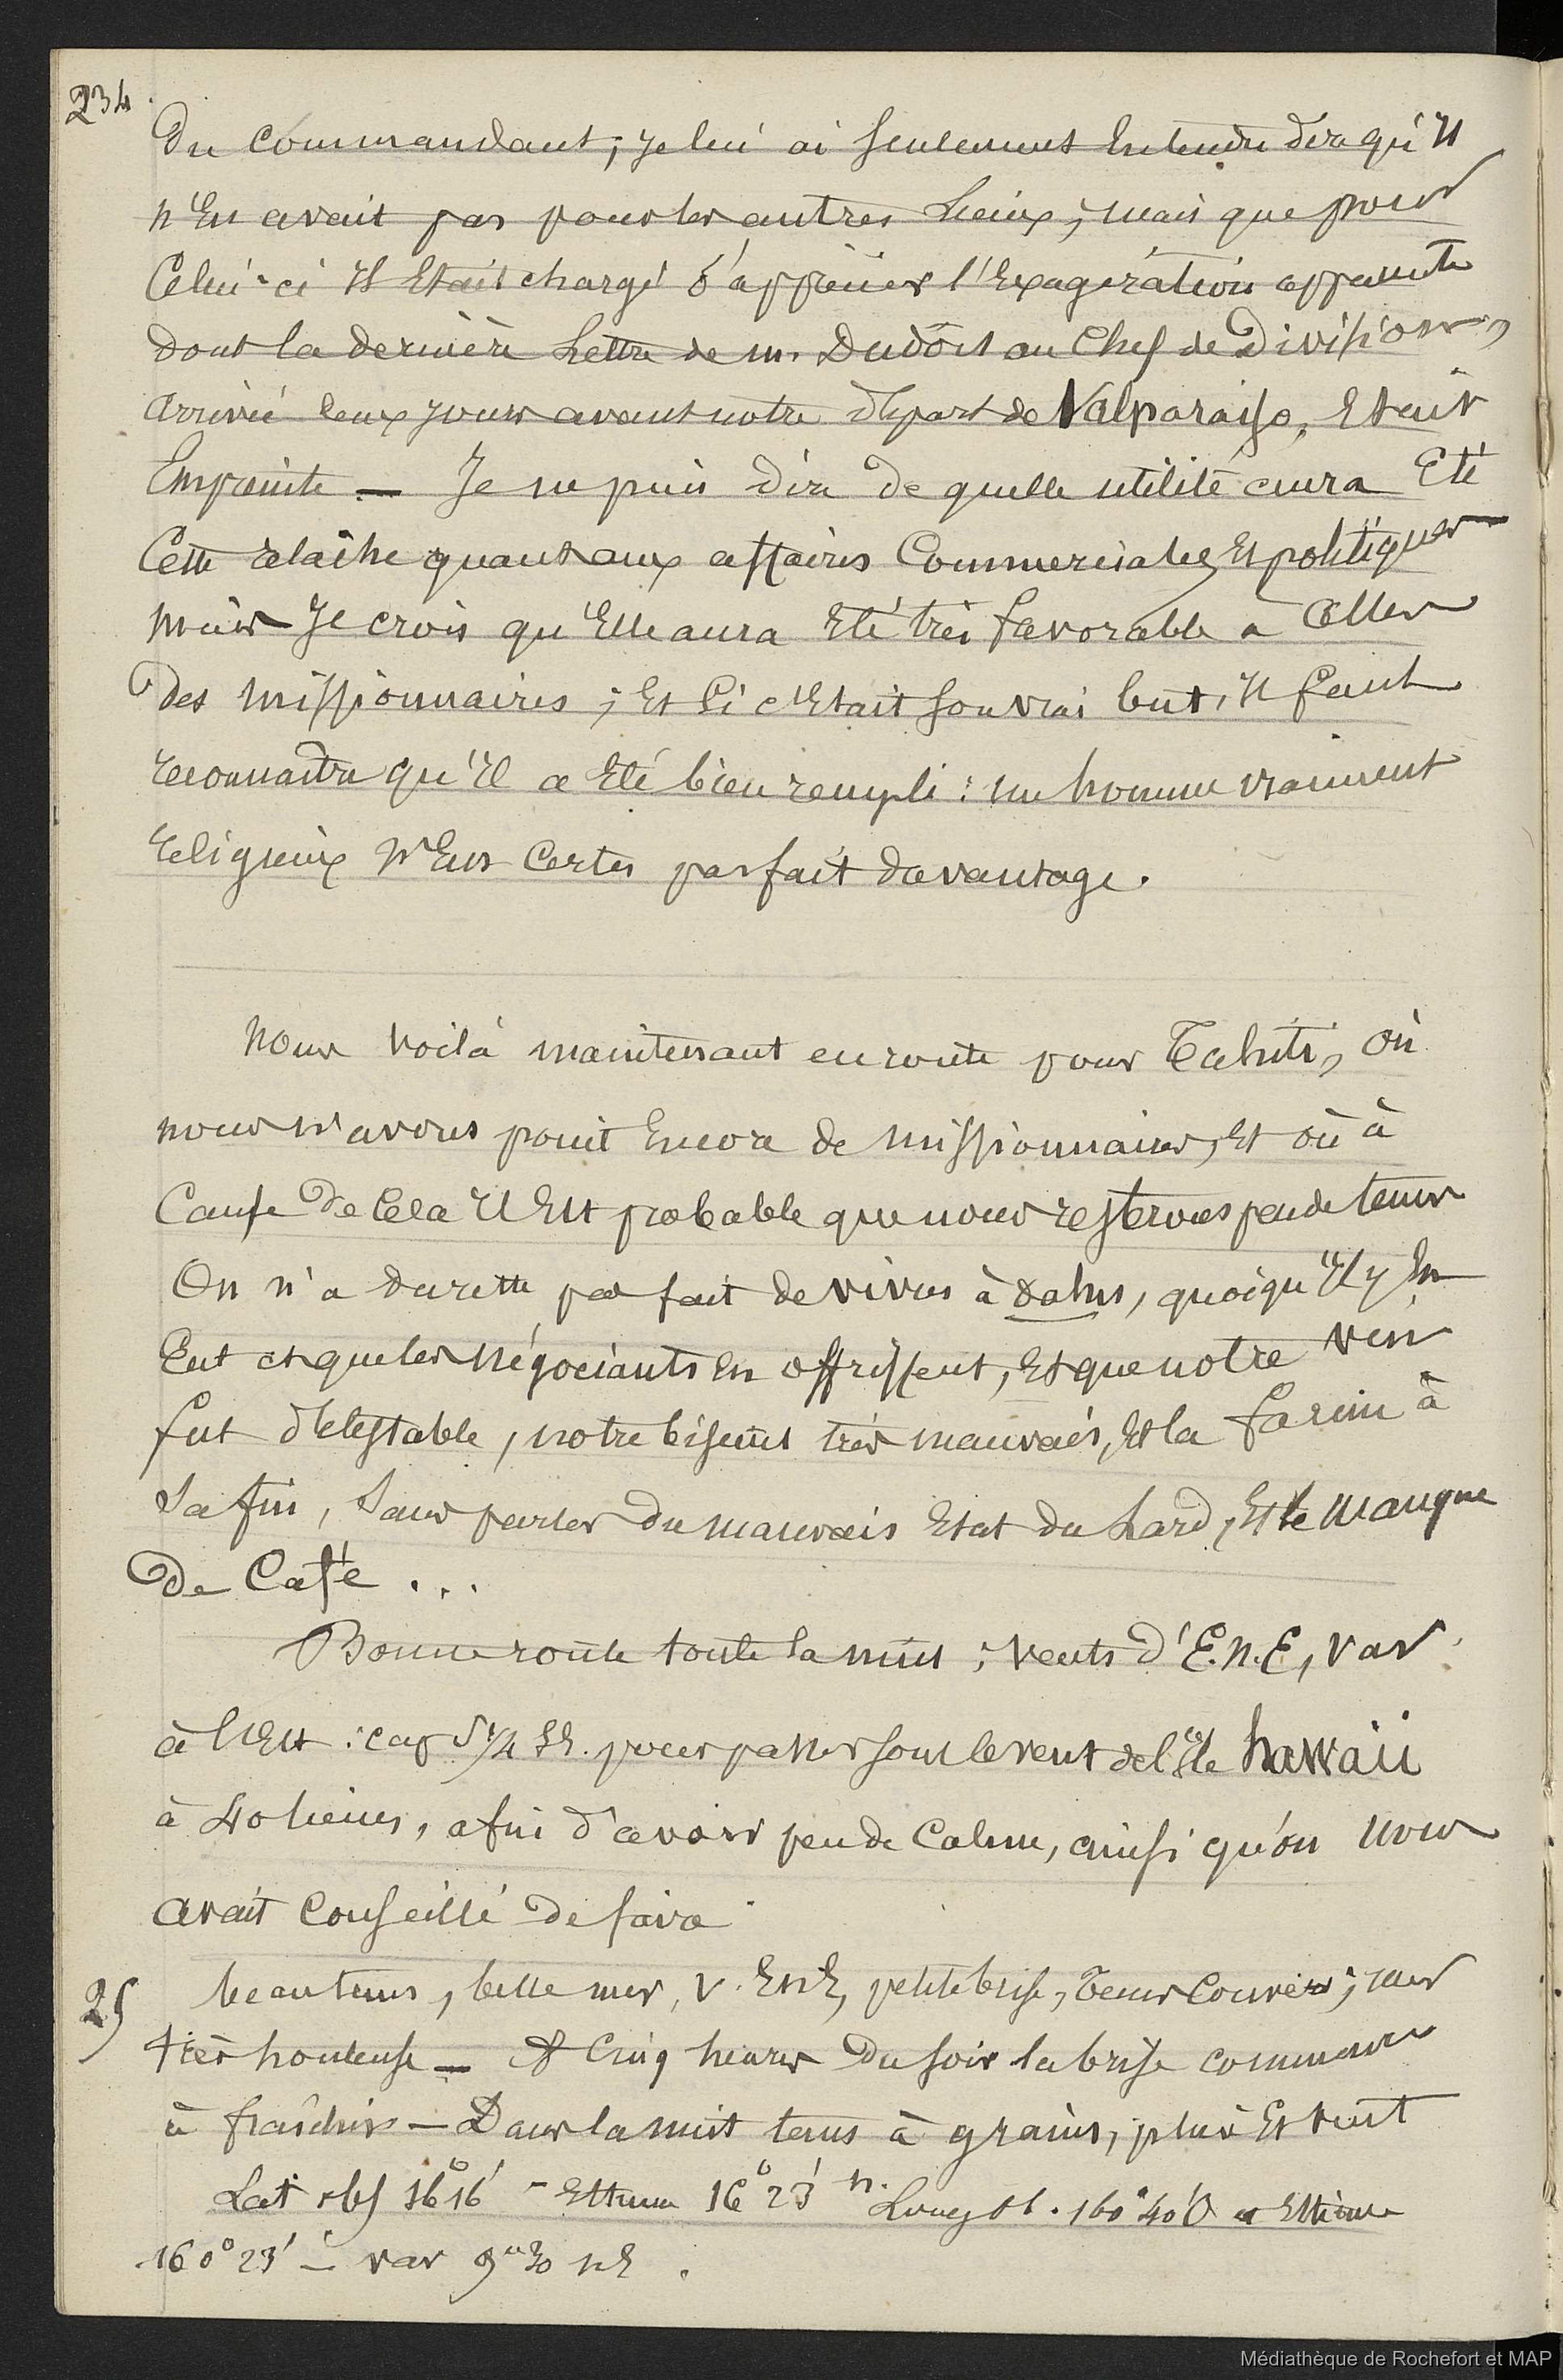 234
du commandant; je lui ai seulement entendu dire qu'il
n'en avait pas pour les autres lieux; mais que pour
celui-ci il était chargé d'apprécier l'exagération apparente
dont la dernière lettre de m. Dudoit au Chef de Division,
arrivée deux jours avant notre départ de Valparaiso, était
empreinte — Je ne puis dire de quelle utilité aura été
cette relâche quant aux affaires commerciales et politiques
mais je crois qu'elle aura été très favorable à celles
des missionnaires; et si c'était son vrai but, il faut
reconnaitre qu'il a été bien rempli: un homme vraiment
religieux n'eut certes pas fait davantage.
Nous voilà maintenant en route pour Tahiti, où
nous n'avons point encore de missionnaires, et où à
cause de cela il est probable que nous resterons peu de tems
On n'a du reste pas fait de vivres à oahu, quoiqu'il y en
eut et que les négociants en offrissent, et que notre vin
fut détestable, notre biscuit très mauvais, et la farine à
sa fin, sans parler du mauvais état du lard, et le manque
de Café ...
Bonne route toute la nuit; vents d'E.N.E, var
à l'Est: cap S 1/4 SE. pour passer sous le vent de l'île hawaii
à 40 lieues, afin d'avoir peu de calme, ainsi qu'on nous
avait conseillé de faire
25 beau tems, belle mer, V. ENE, petite brise, tems couvert; mer
très houleuse — A cinq heures du soir la brise commence
à fraîchir — Dans la nuit tems à grains, pluie et vent
Lat obs 16°16' - Estime 16°23' N. Long ob. 160°40' O et Estime
160°23' — var 9° 30 NE.